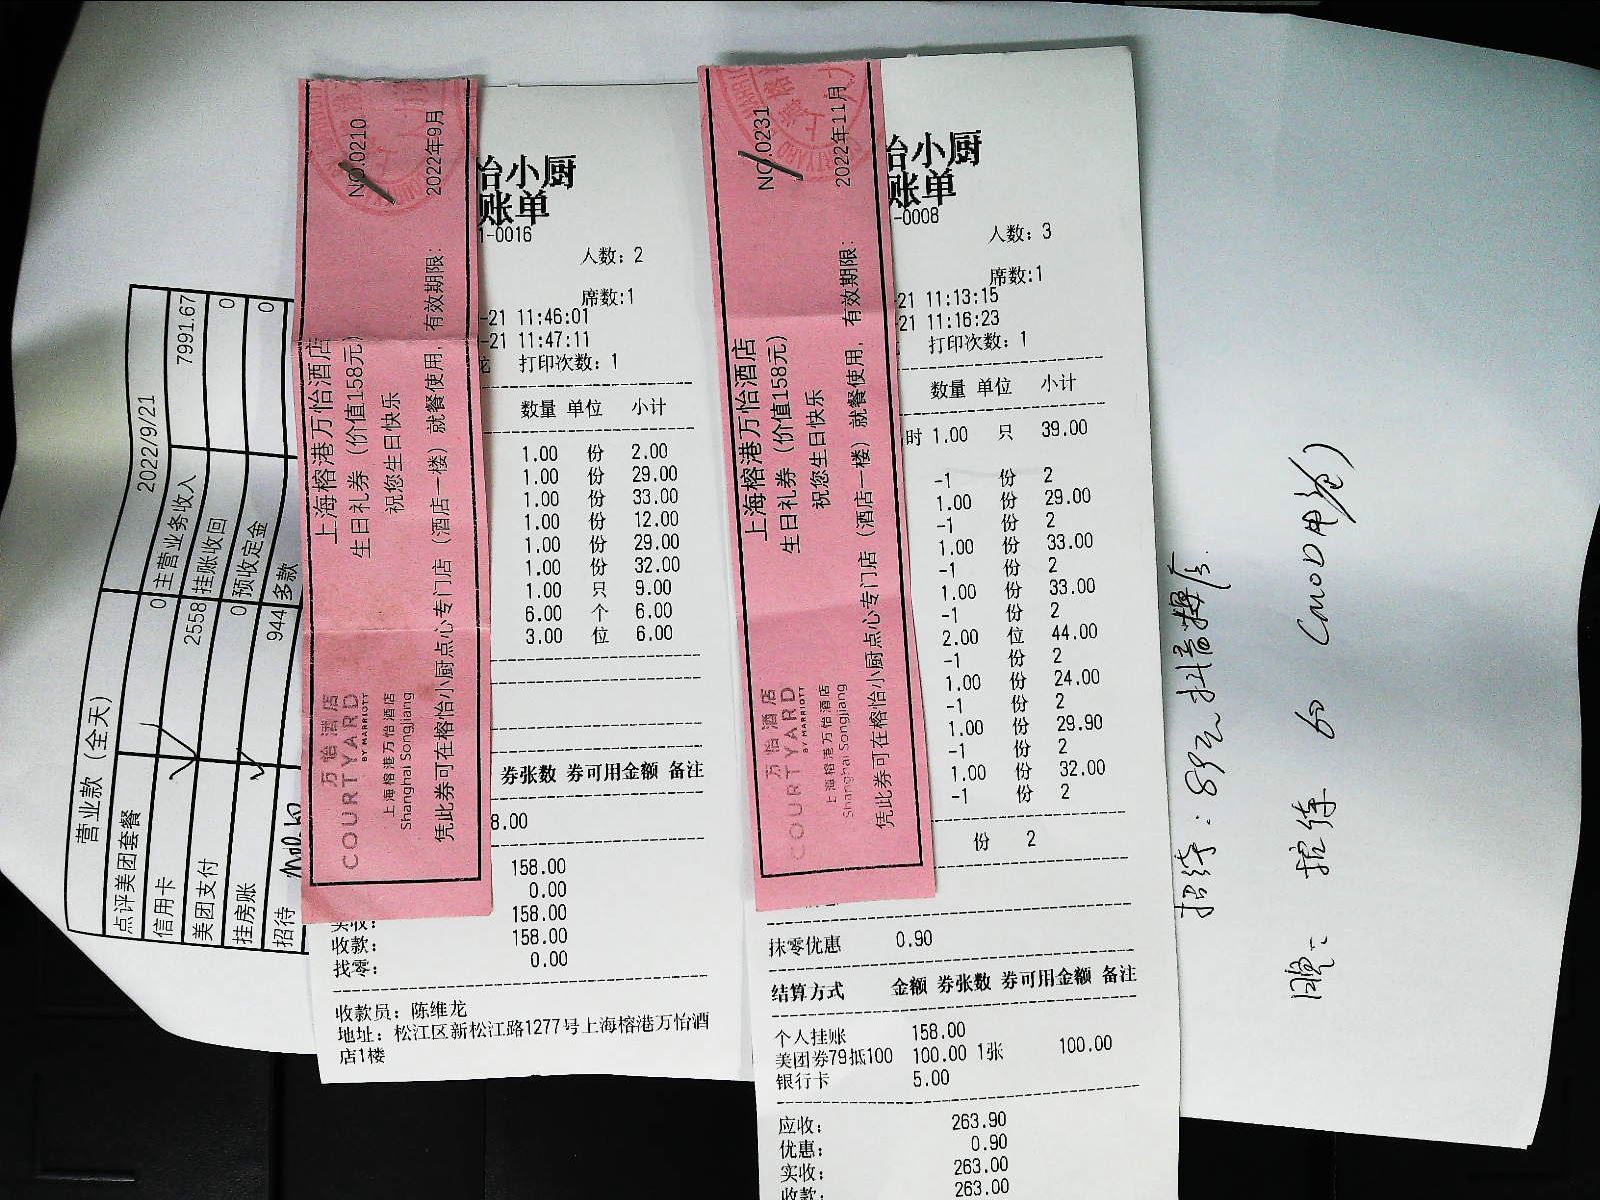 营业款（全天） 2022/9/21
点评美团套餐 0 主营业务收入 7991.67
信用卡 2558 挂账收回 0
美团支付 0 预收定金 0
挂房账 944 多款
招待
NO.0210
2022年9月
上海榕港万怡酒店
生日礼券（价值158元）
祝您生日快乐
凭此券可在榕怡小厨点心专门店（酒店一楼）就餐使用，有效期限：
万怡酒店
COURTYARD
BY MARRIOTT
上海榕港万怡酒店
Shanghai Songjiang
怡小厨
账单
1-0016
人数：2
席数:1
-21 11:46:01
-21 11:47:11
龙 打印次数：1
数量 单位 小计
1.00 份 2.00
1.00 份 29.00
1.00 份 33.00
1.00 份 12.00
1.00 份 29.00
1.00 份 32.00
1.00 只 9.00
6.00 个 6.00
3.00 位 6.00
券张数 券可用金额 备注
8.00
158.00
0.00
实收： 158.00
收款： 158.00
找零： 0.00
收款员：陈维龙
地址：松江区新松江路1277号上海榕港万怡酒
店1楼
NO.0231
2022年11月
上海榕港万怡酒店
生日礼券（价值158元）
祝您生日快乐
凭此券可在榕怡小厨点心专门店（酒店一楼）就餐使用，有效期限：
万怡酒店
COURTYARD
BY MARRIOTT
上海榕港万怡酒店
Shanghai Songjiang
怡小厨
账单
-0008
人数：3
席数:1
-21 11:13:15
-21 11:16:23
打印次数：1
数量 单位 小计
时 1.00 只 39.00
-1 份 2
1.00 份 29.00
-1 份 2
1.00 份 33.00
-1 份 2
1.00 份 33.00
-1 份 2
2.00 位 44.00
-1 份 2
1.00 份 24.00
-1 份 2
1.00 份 29.90
-1 份 2
1.00 份 32.00
-1 份 2
份 2
抹零优惠 0.90
结算方式 金额 券张数 券可用金额 备注
个人挂账 158.00
美团券79抵100 100.00 1张 100.00
银行卡 5.00
应收： 263.90
优惠： 0.90
实收： 263.00
收款： 263.00
招待：89元抖音
晚： 招待 60